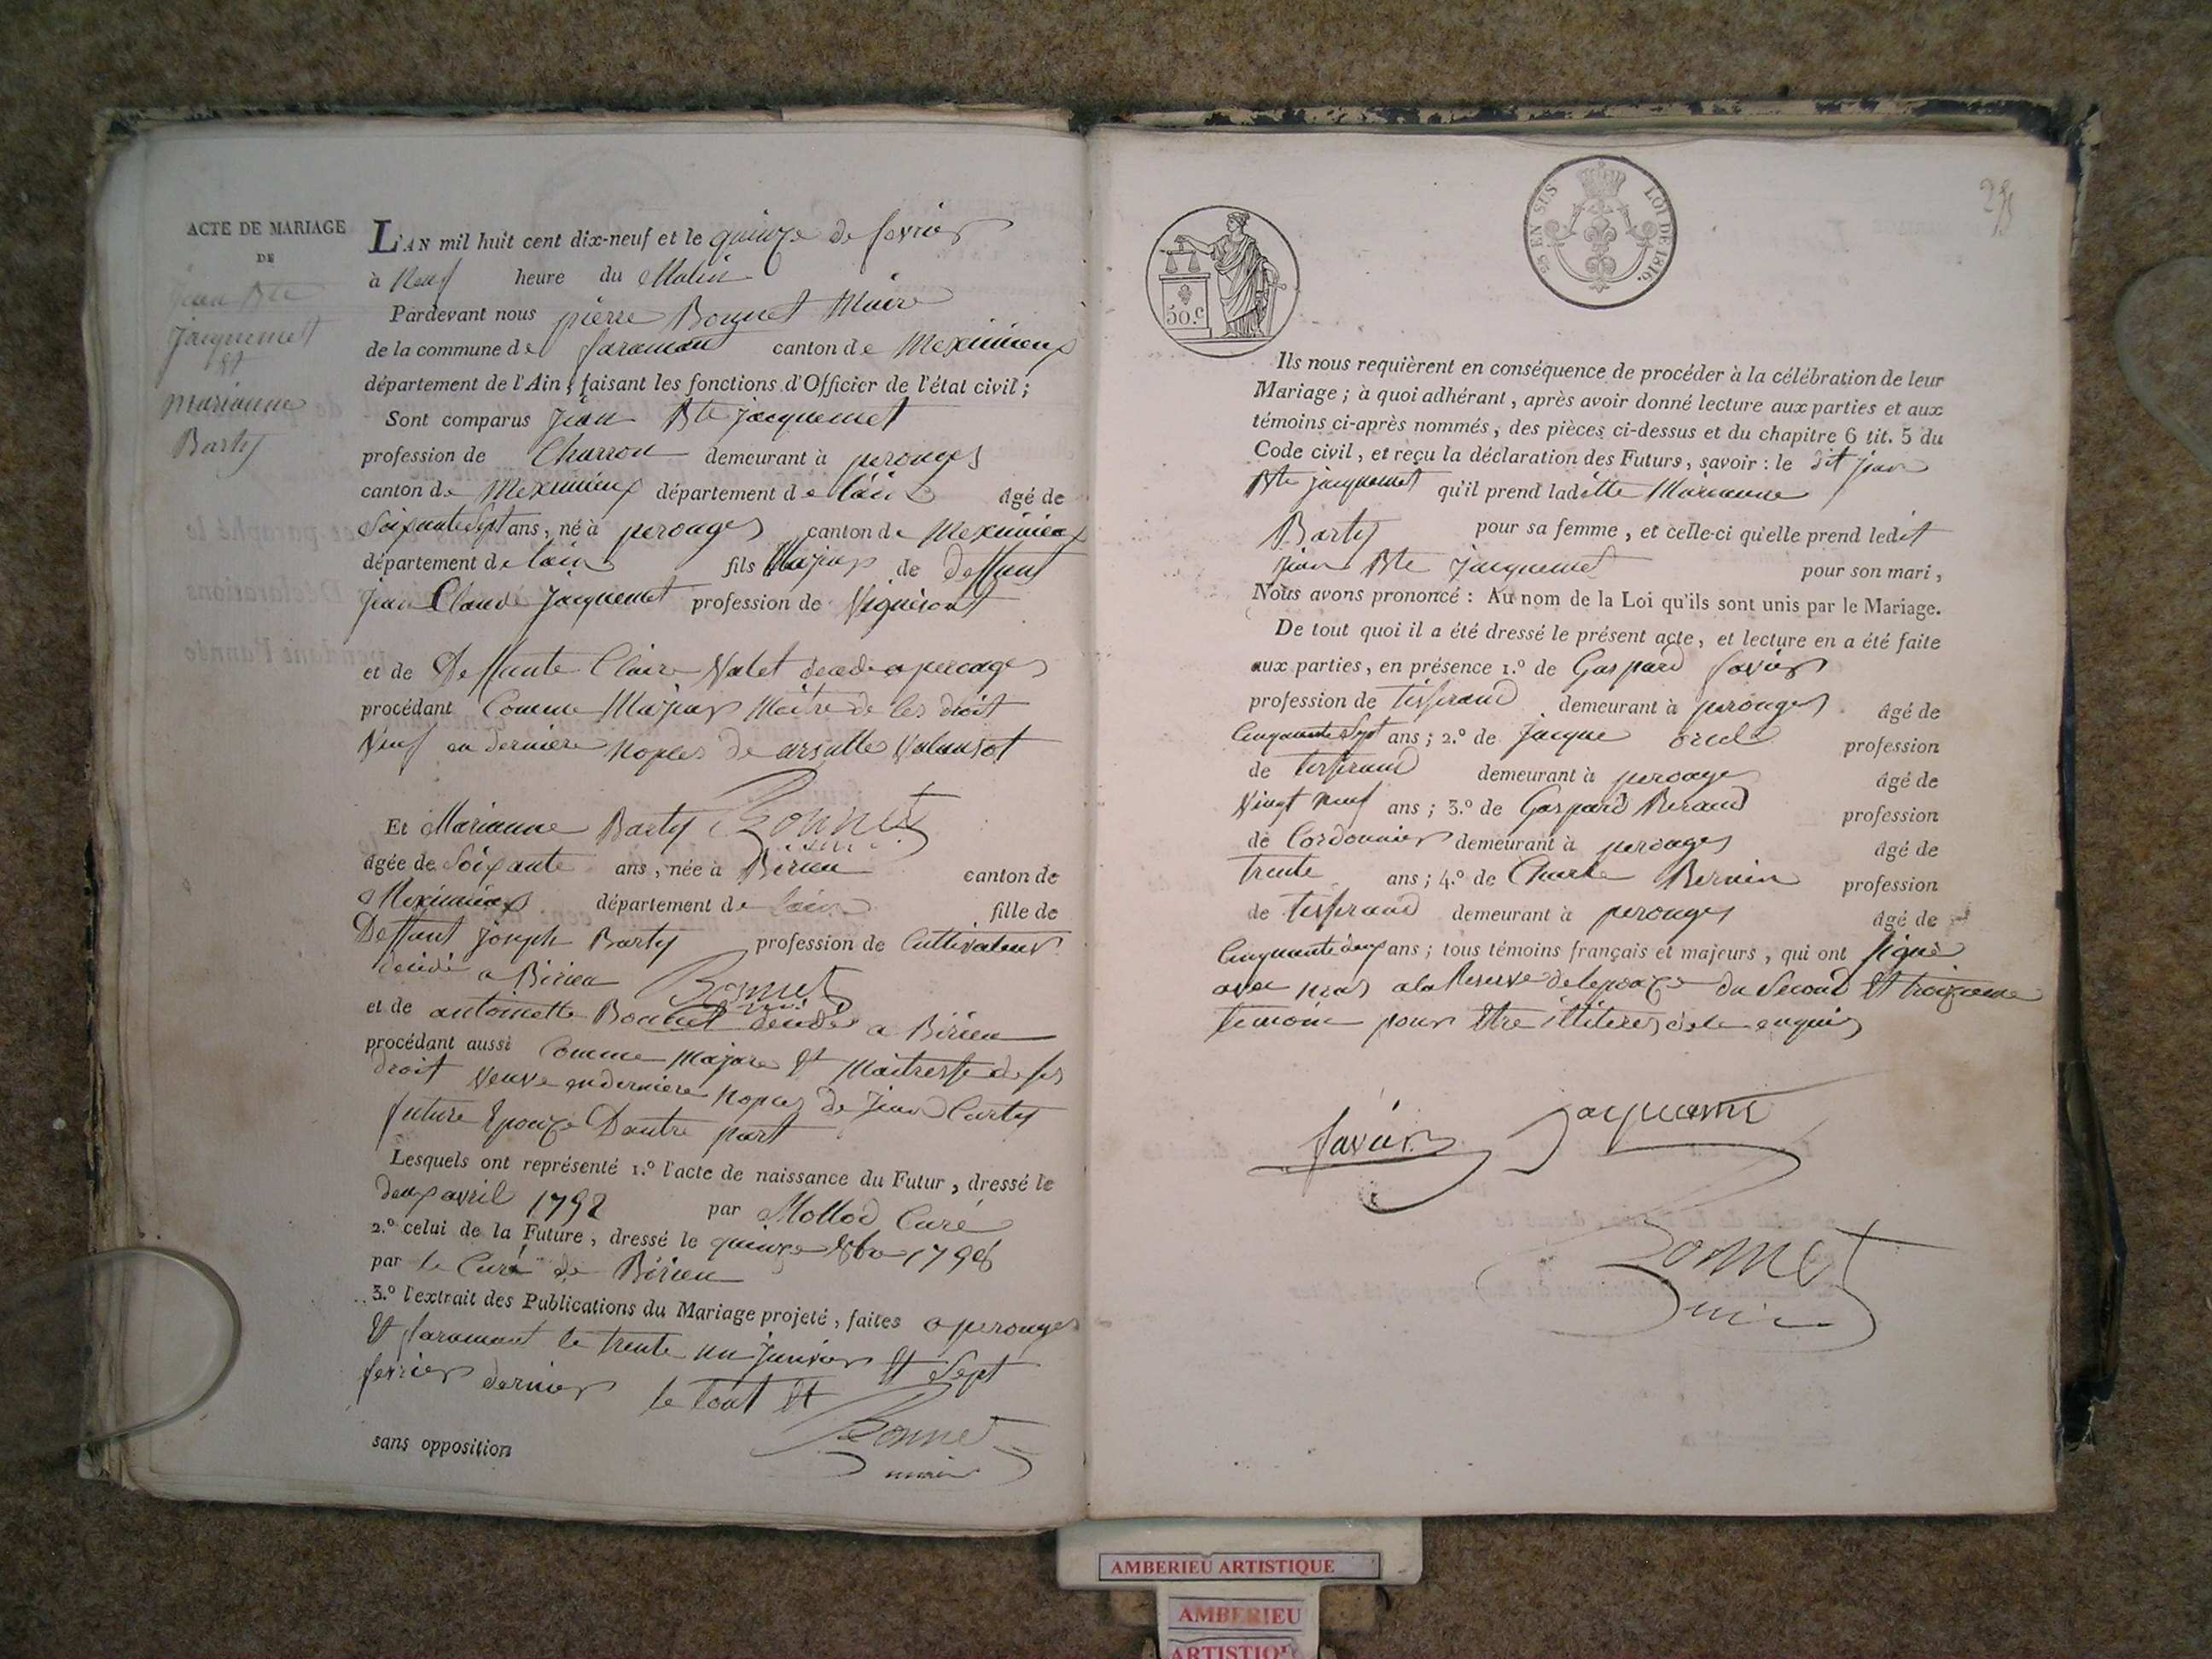 ACTE DE MARIAGE
DE
jean Bte
jacquemet
Et
marianne
Barty
L'AN mil huit cent dix-neuf et le quinze de fevrier
à Neuf heure du Matin
Pardevant nous pierre Bonnet Maire
de la commune de faramant canton de Meximieux
département de l'Ain, faisant les fonctions d'Officier de l'état civil;
Sont comparus jean Bte jacquemet
profession de Charron demeurant à perouges
canton de Meximieux département de lain âgé de
Soixante Sept ans, né à perouges canton de Meximieux
département de lain fils Majeur de deffunt
jean Claude jacquemet profession de Vigneront
et de Deffunte Claire Valet decede a perouges
procédant Comme Majeur Maitre de ses droit
Veuf en derniere Nopces de
Et Marianne Barty Bonnet
maire
âgée de Soixante ans, née à Birieu canton de
Meximieux département de lain fille de
Deffunt joseph Barty profession de Cultivateur
décédé a Birieu Bonnet
et de antoinette Bonnet décédé a Birieu
procédant aussi Comme Majore Et Maitresse de ses
droit Veuve en derniere Nopces de jean Curty
future Epouze Dautre part
Lesquels ont représenté 1.º l'acte de naissance du Futur, dressé le
deux avril 1792 par Mollod Curé
2.º celui de la Future, dressé le quinze 8bre 1798
par le Curé de Birieu
3.º l'extrait des Publications du Mariage projeté, faites a perouges
Et faramant le trente un janvier Et Sept
fevrier dernier le tout Et
sans opposition
Bonnet
maire
25
50.c
25 EN SUS
LOI DE 1816.
Ils nous requièrent en conséquence de procéder à la célébration de leur
Mariage; à quoi adhérant, après avoir donné lecture aux parties et aux
témoins ci-après nommés, des pièces ci-dessus et du chapitre 6 tit. 5 du
Code civil, et reçu la déclaration des Futurs, savoir: le dit jean
Bte jacquemet qu'il prend laditte Marianne
Barty pour sa femme, et celle-ci qu'elle prend ledit
jean Bte jacquemet pour son mari,
Nous avons prononcé: Au nom de la Loi qu'ils sont unis par le Mariage.
De tout quoi il a été dressé le présent acte, et lecture en a été faite
aux parties, en présence 1.º de Gaspard favier
profession de tisserand demeurant à perouges âgé de
Cinquante Sept ans; 2.º de jacque orcel profession
de tisserand demeurant à perouges âgé de
Vingt neuf ans; 3.º de Gaspard Beraud profession
de Cordonnier demeurant à perouges âgé de
trente ans; 4.º de Charle Bernin profession
de tisserand demeurant à perouges âgé de
Cinquante deux ans; tous témoins français et majeurs, qui ont signé
avec nous a la Reserve de lepouze du Second Et troizieme
temoin pour Etre illiteres de ce enquis
favier jacquemet
Bonnet
maire
AMBERIEU ARTISTIQUE
AMBERIEU
ARTISTIQUE